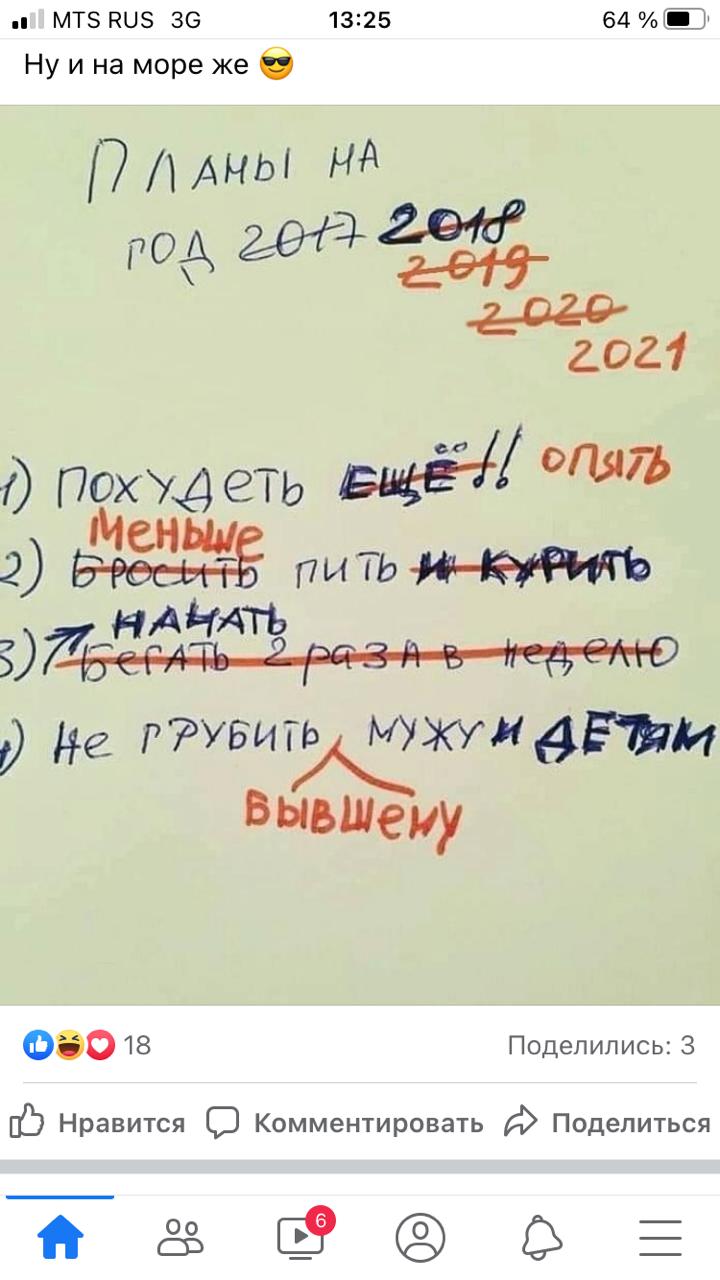 MTS RUS 3G 13:25 64 %
Ну и на море же 😎
ПЛАНЫ НА
ГОД 2017 2018
2019
2020
2021
1) ПОХУДЕТЬ ЕЩЁ!! ОПЯТЬ
МЕНЬШЕ
2) БРОСИТЬ ПИТЬ И КУРИТЬ
НАЧАТЬ
3) БЕГАТЬ 2 РАЗА В НЕДЕЛЮ
4) НЕ ГРУБИТЬ МУЖУ И ДЕТЯМ
БЫВШЕМУ
18 Поделились: 3
Нравится Комментировать Поделиться
6